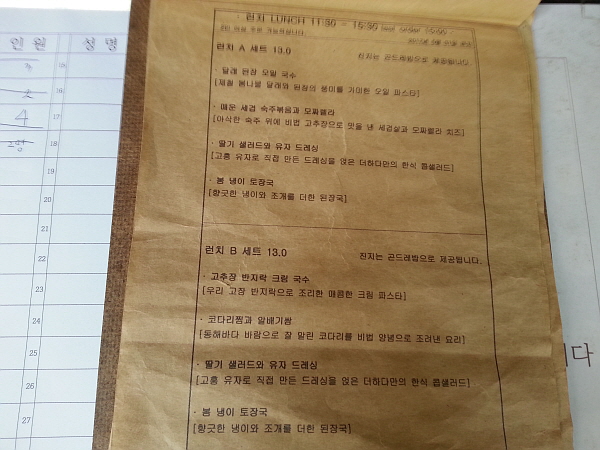 인원 성명
4
2명
15
16
17
18
19
20
21
22
23
24
25
26
27
· 런치 LUNCH 11:30 - 15:30
런치 A 세트 13.0 진지는 곤드레밥으로 제공됩니다.
· 달래 된장 오일 국수
[제철 봄나물 달래와 된장의 풍미를 가미한 오일 파스타]
· 매운 세겹 숙주볶음과 모짜렐라
[아삭한 숙주 위에 비법 고추장으로 맛을 낸 세겹살과 모짜렐라 치즈]
· 딸기 샐러드와 유자 드레싱
[고흥 유자로 직접 만든 드레싱을 얹은 더하다만의 한식 콥샐러드]
· 봄 냉이 토장국
[향긋한 냉이와 조개를 더한 된장국]
런치 B 세트 13.0 진지는 곤드레밥으로 제공됩니다.
· 고추장 반지락 크림 국수
[우리 고장 반지락으로 조리한 매콤한 크림 파스타]
· 코다리찜과 알배기쌈
[동해바다 바람으로 잘 말린 코다리를 비법 양념으로 조려낸 요리]
· 딸기 샐러드와 유자 드레싱
[고흥 유자로 직접 만든 드레싱을 얹은 더하다만의 한식 콥샐러드]
· 봄 냉이 토장국
[향긋한 냉이와 조개를 더한 된장국]
니다